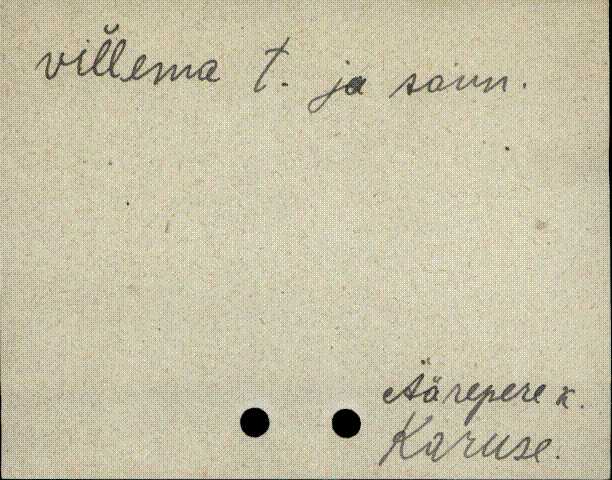 villema t. ja saun.
Äärepere k.
Karuse.